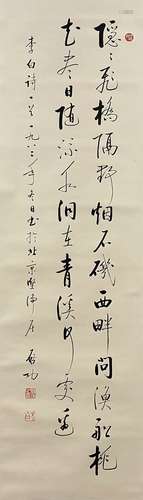 隱〻飛橋隔野烟石磯西畔問漁船桃
花盡日随流水洞在青溪何處邊
李白詩一首一九八二年冬日書於北京堅净居 啟功